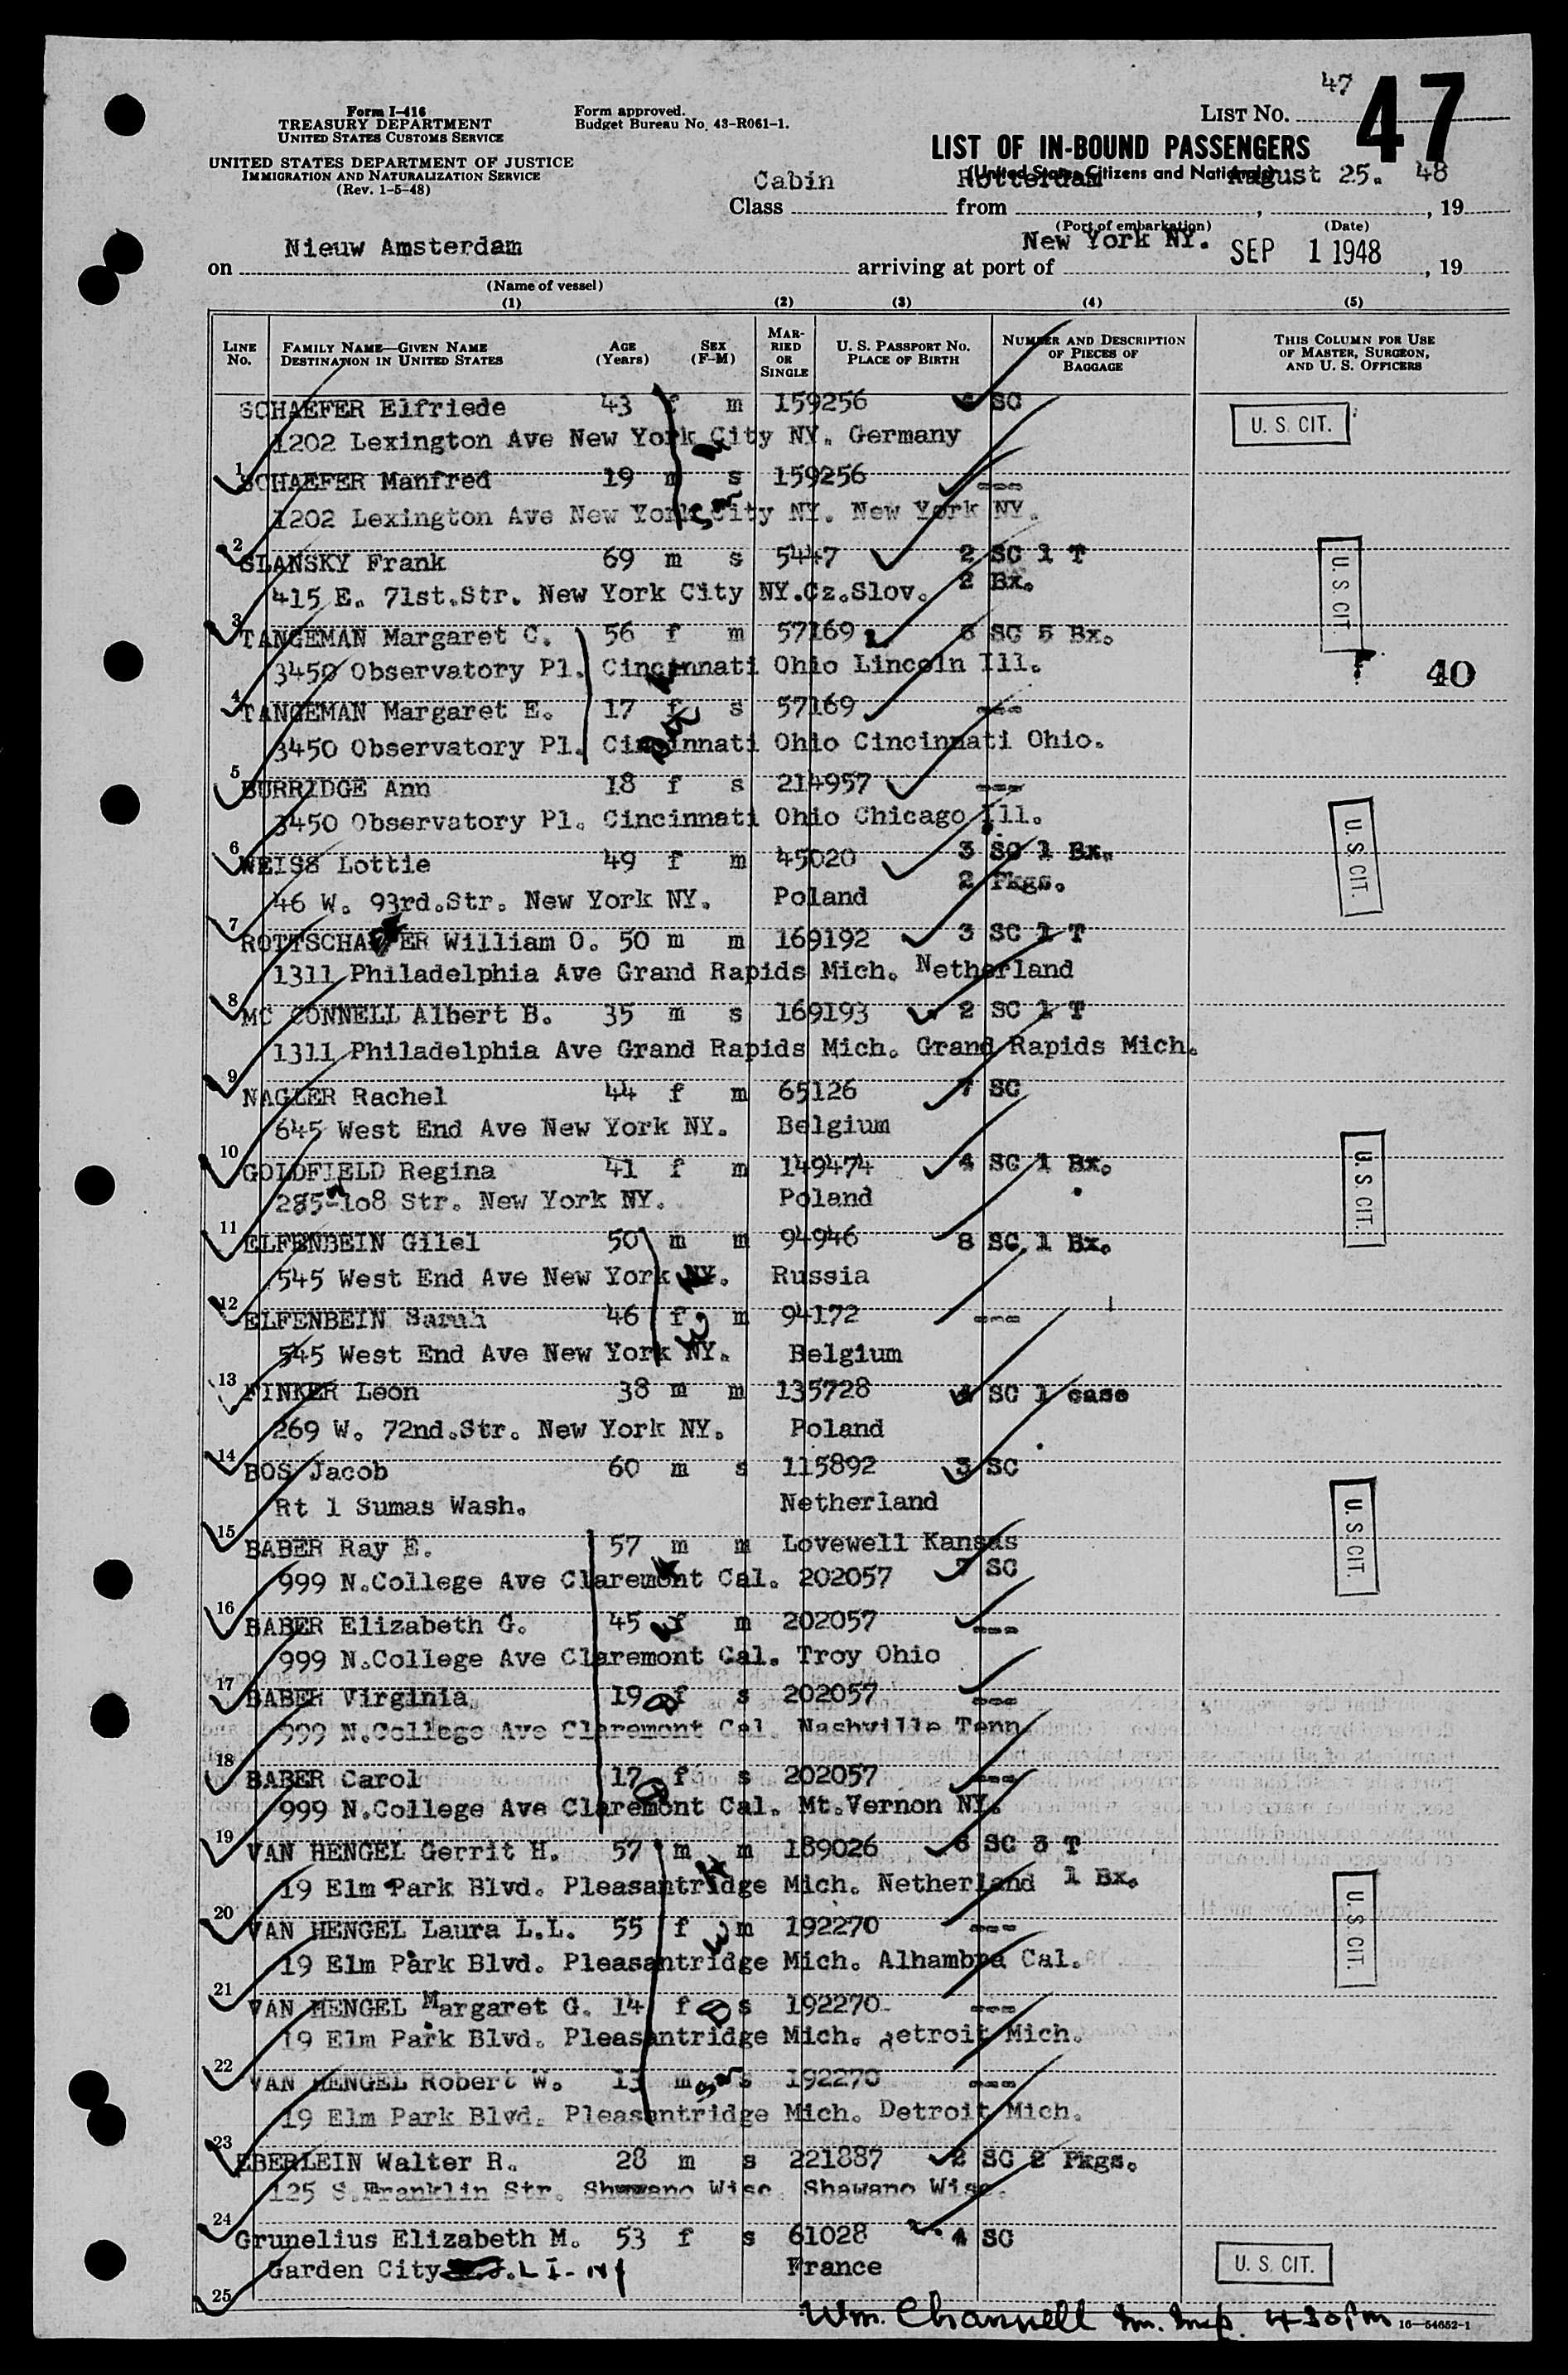 47
47
Form I-416
TREASURY DEPARTMENT
UNITED STATES CUSTOMS SERVICE
UNITED STATES DEPARTMENT OF JUSTICE
IMMIGRATION AND NATURALIZATION SERVICE
(Rev. 1-5-48)
Form approved.
Budget Bureau No. 43-R061-1.
LIST NO.
LIST OF IN-BOUND PASSENGERS
(United States Citizens and Nationals)
Cabin Rotterdam August 25. 48
Class from , , 19
(Port of embarkation) (Date)
Nieuw Amsterdam New York NY. SEP 1 1948
on arriving at port of , 19
(Name of vessel)
(1) (2) (3) (4) (5)
LINE No. FAMILY NAME—GIVEN NAME DESTINATION IN UNITED STATES AGE (Years) SEX (F-M) MARRIED OR SINGLE U. S. PASSPORT NO. PLACE OF BIRTH NUMBER AND DESCRIPTION OF PIECES OF BAGGAGE THIS COLUMN FOR USE OF MASTER, SURGEON, AND U. S. OFFICERS
SCHAEFER Elfriede 43 f m 159256 SC U. S. CIT.
1202 Lexington Ave New York City NY. Germany
1
SCHAEFER Manfred 19 m s 159256 ---
1202 Lexington Ave New York City NY. New York NY.
2
SLANSKY Frank 69 m s 5447 2 SC 1 T U. S. CIT.
415 E. 71st.Str. New York City NY.Cz.Slov. 2 Bx.
3
TANGEMAN Margaret C. 56 f m 57169 6 SC 5 Bx.
3450 Observatory Pl. Cincinnati Ohio Lincoln Ill. 40
4
TANGEMAN Margaret E. 17 f s 57169 ---
3450 Observatory Pl. Cincinnati Ohio Cincinnati Ohio.
5
BURRIDGE Ann 18 f s 214957 ---
3450 Observatory Pl. Cincinnati Ohio Chicago Ill. U. S. CIT.
6
WEISS Lottie 49 f m 45020 3 SC 1 Bx.
2 Pkgs.
46 W. 93rd.Str. New York NY. Poland
7
ROTTSCHAFER William O. 50 m m 169192 3 SC 1 T
1311 Philadelphia Ave Grand Rapids Mich. Netherland
8
MC CONNELL Albert B. 35 m s 169193 2 SC 1 T
1311 Philadelphia Ave Grand Rapids Mich. Grand Rapids Mich.
9
NAGLER Rachel 44 f m 65126 7 SC
645 West End Ave New York NY. Belgium
10
GOLDFIELD Regina 41 f m 149474 4 SC 1 Bx. U. S. CIT.
285-108 Str. New York NY. Poland
11
ELFENBEIN Gilel 50 m m 94946 8 SC 1 Bx.
545 West End Ave New York NY. Russia
12
ELFENBEIN Sarah 46 f m 94172 ---
545 West End Ave New York NY. Belgium
13
FINKER Leon 38 m m 135728 4 SC 1 case
269 W. 72nd.Str. New York NY. Poland
14
BOS Jacob 60 m s 115892 3 SC
Rt 1 Sumas Wash. Netherland U. S. CIT.
15
BABER Ray E. 57 m m Lovewell Kansas
999 N.College Ave Claremont Cal. 202057 7 SC
16
BABER Elizabeth G. 45 f m 202057 ---
999 N.College Ave Claremont Cal. Troy Ohio
17
BABER Virginia 19 f s 202057 ---
999 N.College Ave Claremont Cal. Nashville Tenn
18
BABER Carol 17 f s 202057 ---
999 N.College Ave Claremont Cal. Mt.Vernon NY.
19
VAN HENGEL Gerrit H. 57 m m 189026 6 SC 3 T
19 Elm Park Blvd. Pleasantridge Mich. Netherland 1 Bx.
20
VAN HENGEL Laura L.L. 55 f m 192270 --- U. S. CIT.
19 Elm Park Blvd. Pleasantridge Mich. Alhambra Cal.
21
VAN HENGEL Margaret G. 14 f s 192270 ---
19 Elm Park Blvd. Pleasantridge Mich. Detroit Mich.
22
VAN HENGEL Robert W. 13 m s 192270 ---
19 Elm Park Blvd. Pleasantridge Mich. Detroit Mich.
23
EBERLEIN Walter R. 28 m s 221887 2 SC 2 Pkgs.
125 S.Franklin Str. Shawano Wisc. Shawano Wisc.
24
Grunelius Elizabeth M. 53 f s 61028 4 SC
Garden City L I - NY France U. S. CIT.
25
Wm. Channell Im. Insp. 430 pm 16—54652-1